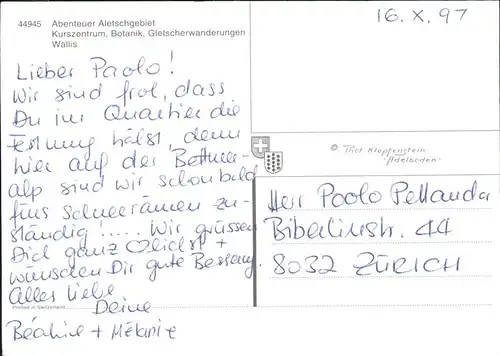 44945 Abenteuer Aletschgebiet
Kurszentrum, Botanik, Gletscherwanderungen
Wallis
16. X. 97
Lieber Paolo!
Wir sind froh, dass
Du im Quartier die
Festung hälst, denn
hier auf der Bettmer-
alp sind wir schon bald
fürs Schneeräumen zu-
ständig!..... Wir grüssen
Dich ganz ♡lichst +
wünschen Dir gute Besserung
Alles Liebe
Deine
Béatrice + Mélanie
© Thos Klopfenstein
Adelboden
Herr Paolo Pellanda
Biberlinstr. 44
8032 ZÜRICH
Printed in Switzerland